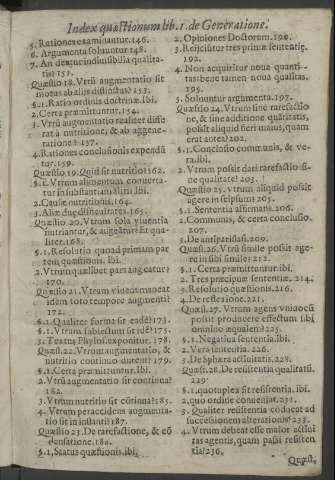 Index quæstionum lib. 1. de Generatione.
5. Rationes examinantur. 146.
6. Argumenta soluuntur. 148.
7. An detque indiuisibilia qualita-
tis? 151.
Quæstio 18. Vtrũ augmentatio sit
motus ab aliis distinctus? 153.
§.1. Ratio ordinis doctrinæ. Ibi.
2. Certa præmittuntur. 154.
3. Vtrũ augmentatio realiter diffe-
rat à nutritione, & ab aggene-
ratione? 157.
4. Rationes conclusionis expendũ
tur. 159.
Quæstio 19. Quid sit nutritio? 162.
§.1. Vtrum alimentum conuerta-
tur in substantiam aliti? Ibi.
2. Causæ nutritionis. 164.
3. Aliæ difficultates. 165.
Quæstio 20. Vtrum sola viuentia
nutriantur, & augeãtur? & qua-
liter. 168.
§.1. Resolutio quoad primam par
tem quæstionis. Ibi.
2. Vtrum quælibet pars augeatur?
170.
Quæstio 21. Vtrum viuens maneat
idem toto tempore augmenti?
172.
§.1. Qualiter forma sit eadẽ? 173.
§.1. Vtrum subiectum sit idẽ? 175.
3. Textus Philos. exponitur. 178.
Quæst. 22. Vtrum augmentatio, &
nutritio continuo durent? 179.
§.1. Certa præmittuntur. Ibi.
2. Vtrũ augmentatio sit continua?
182.
3. Vtrum nutritio sit cõtinua? 185.
4. Vtrum peraccidens augmenta-
tio sit in instanti? 187.
Quæstio 23. De rarefactione, & cõ
densatione. 180.
§.1. Status quæstionis. ibi.
2. Opiniones Doctorum. 190.
3. Reijciũtur tres primæ sententiæ.
192.
4. Non acquiritur noua quanti-
tas; bene tamen noua qualitas.
195.
5. Soluuntur argumenta. 197.
Quæstio 24. Vtrum sine rarefactio
ne, & sine additione quãtitatis,
possit aliquid fieri maius, quam
erat antea? 202.
§.1. Conclusio communis, & ve-
ra. Ibi.
2. Vtrum possit dari rarefactio si-
ne qualitate? 203.
Quæstio 25. Vtrum aliquid possit
agere in seipsum? 205.
§.1. Sententia affirmans. 206.
2. Communis, & certa conclusio.
207.
3. De antiparistasi. 209.
Quæst. 26. Vtrũ simile possit age-
re in sibi simile? 212.
§.1. Certa præmittuntur. ibi.
2. Tres præcipuæ sententiæ. 214.
3. Resolutio quæstionis. 216.
4. De reflexione. 221.
Quæst. 27. Vtrum agens vnidocũ
possit producere effectum sibi
omnino æqualem? 225.
§.1. Negatiua sententia. Ibi.
2. Vera sententia. 226.
3. De Sphæra actiuitatis. 228.
Quæst. 28. De resistentia qualitatũ.
229.
§.1. quotuplex sit resistentia. ibi.
2. quo ordine conueniat. 231.
3. Qualiter resistentia cõducat ad
successionem alterationis? 233.
4. Vtrum debeat esse maior actiui
tas agentis, quam passi resisten
tia? 236.
Quæst.